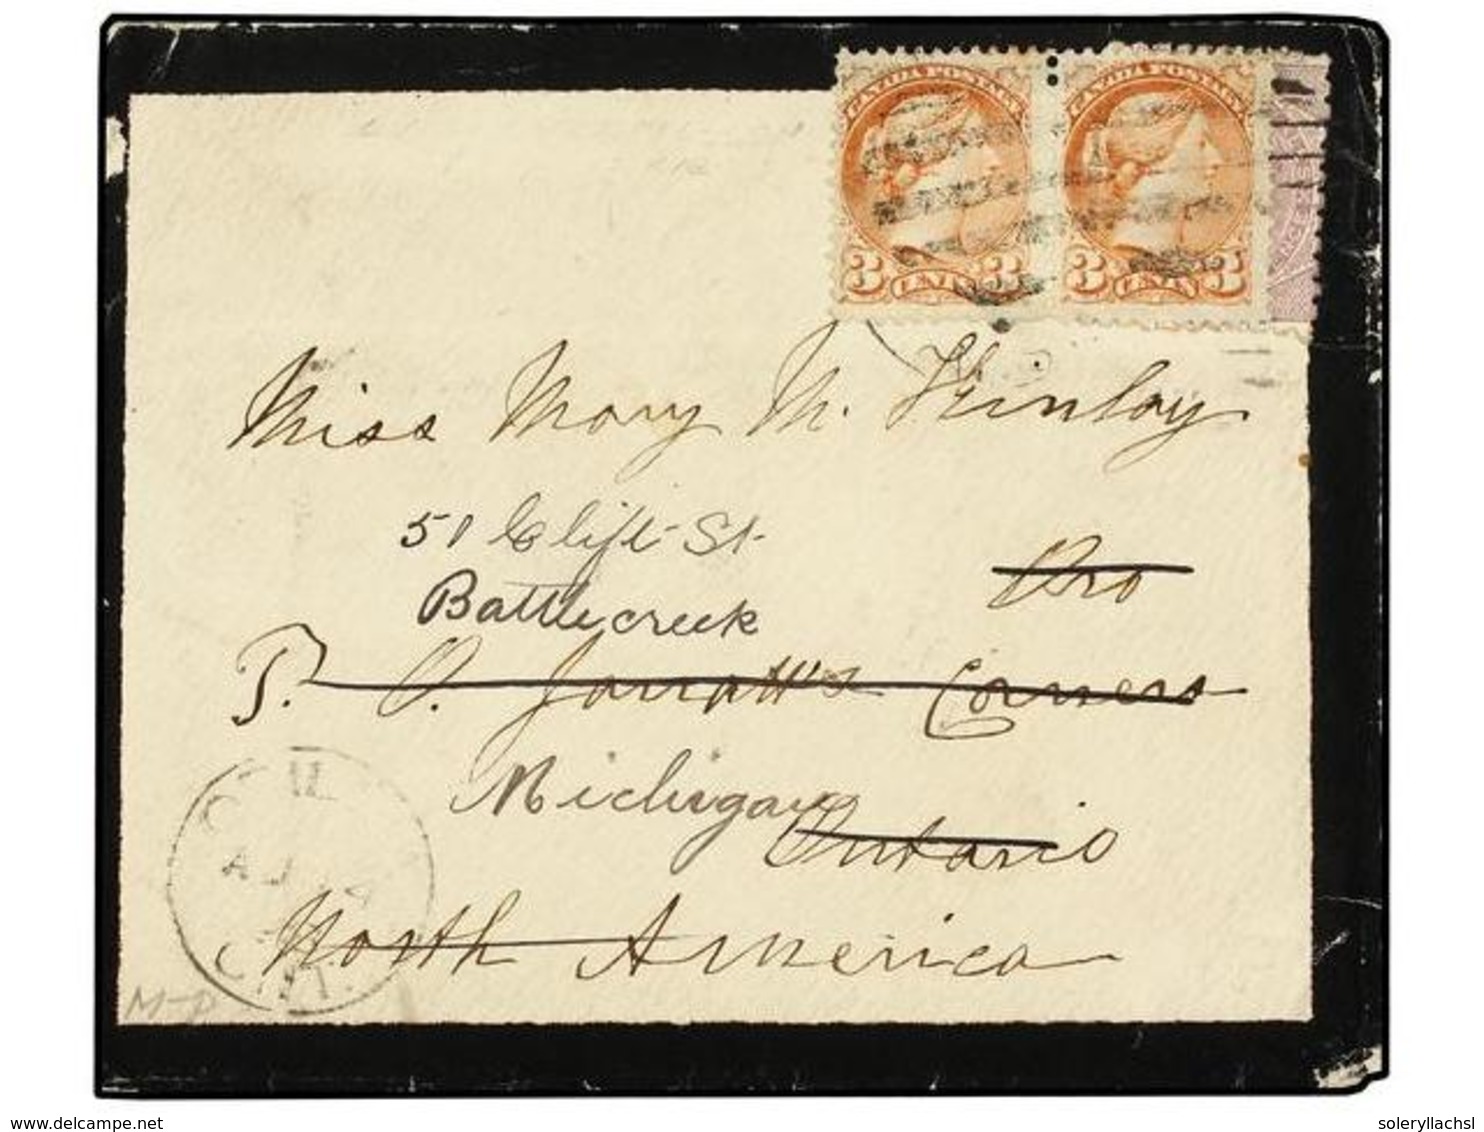 CANADA POSTAGE CANADA POSTAGE
3 CENTS 3 3 CENTS 3
Miss Mary M. Finlay
51 Clift St.
Battlecreek
Oro
P. O. Jarratt's Corners
Michigan
Ontario
North America
ONT.
M-P
www.delcampe.net
soleryllachsl